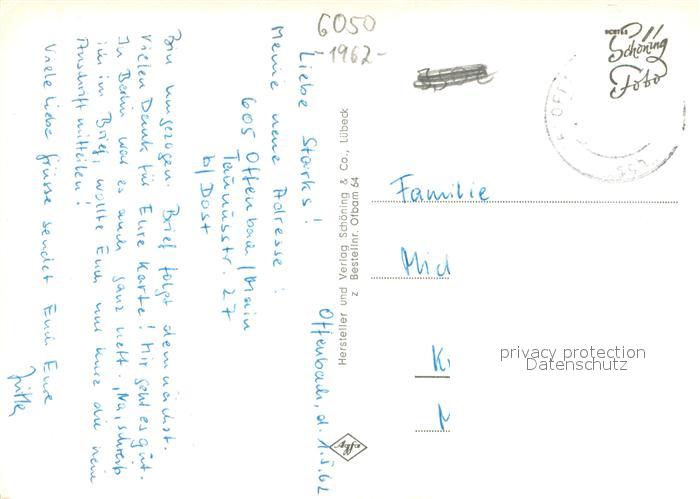 6050
-1962-
Schöning
Foto
Offenbach, d. 1.5.62
Liebe Starks!
Meine neue Adresse:
605 Offenbach/Main
Taunusstr. 27
b/Dost
Bin umgezogen. Brief folgt demnächst.
Vielen Dank für Eure Karte! Mir geht es gut.
In Berlin war es auch ganz nett. Na, schreib
ich im Brief, wollte Euch nur kurz die neue
Anschrift mitteilen!
Viele liebe Grüsse sendet Euch Eure
Hersteller und Verlag Schöning & Co., Lübeck
z Bestellnr. Ofbam 64
Agfa
Familie
privacy protection
Datenschutz